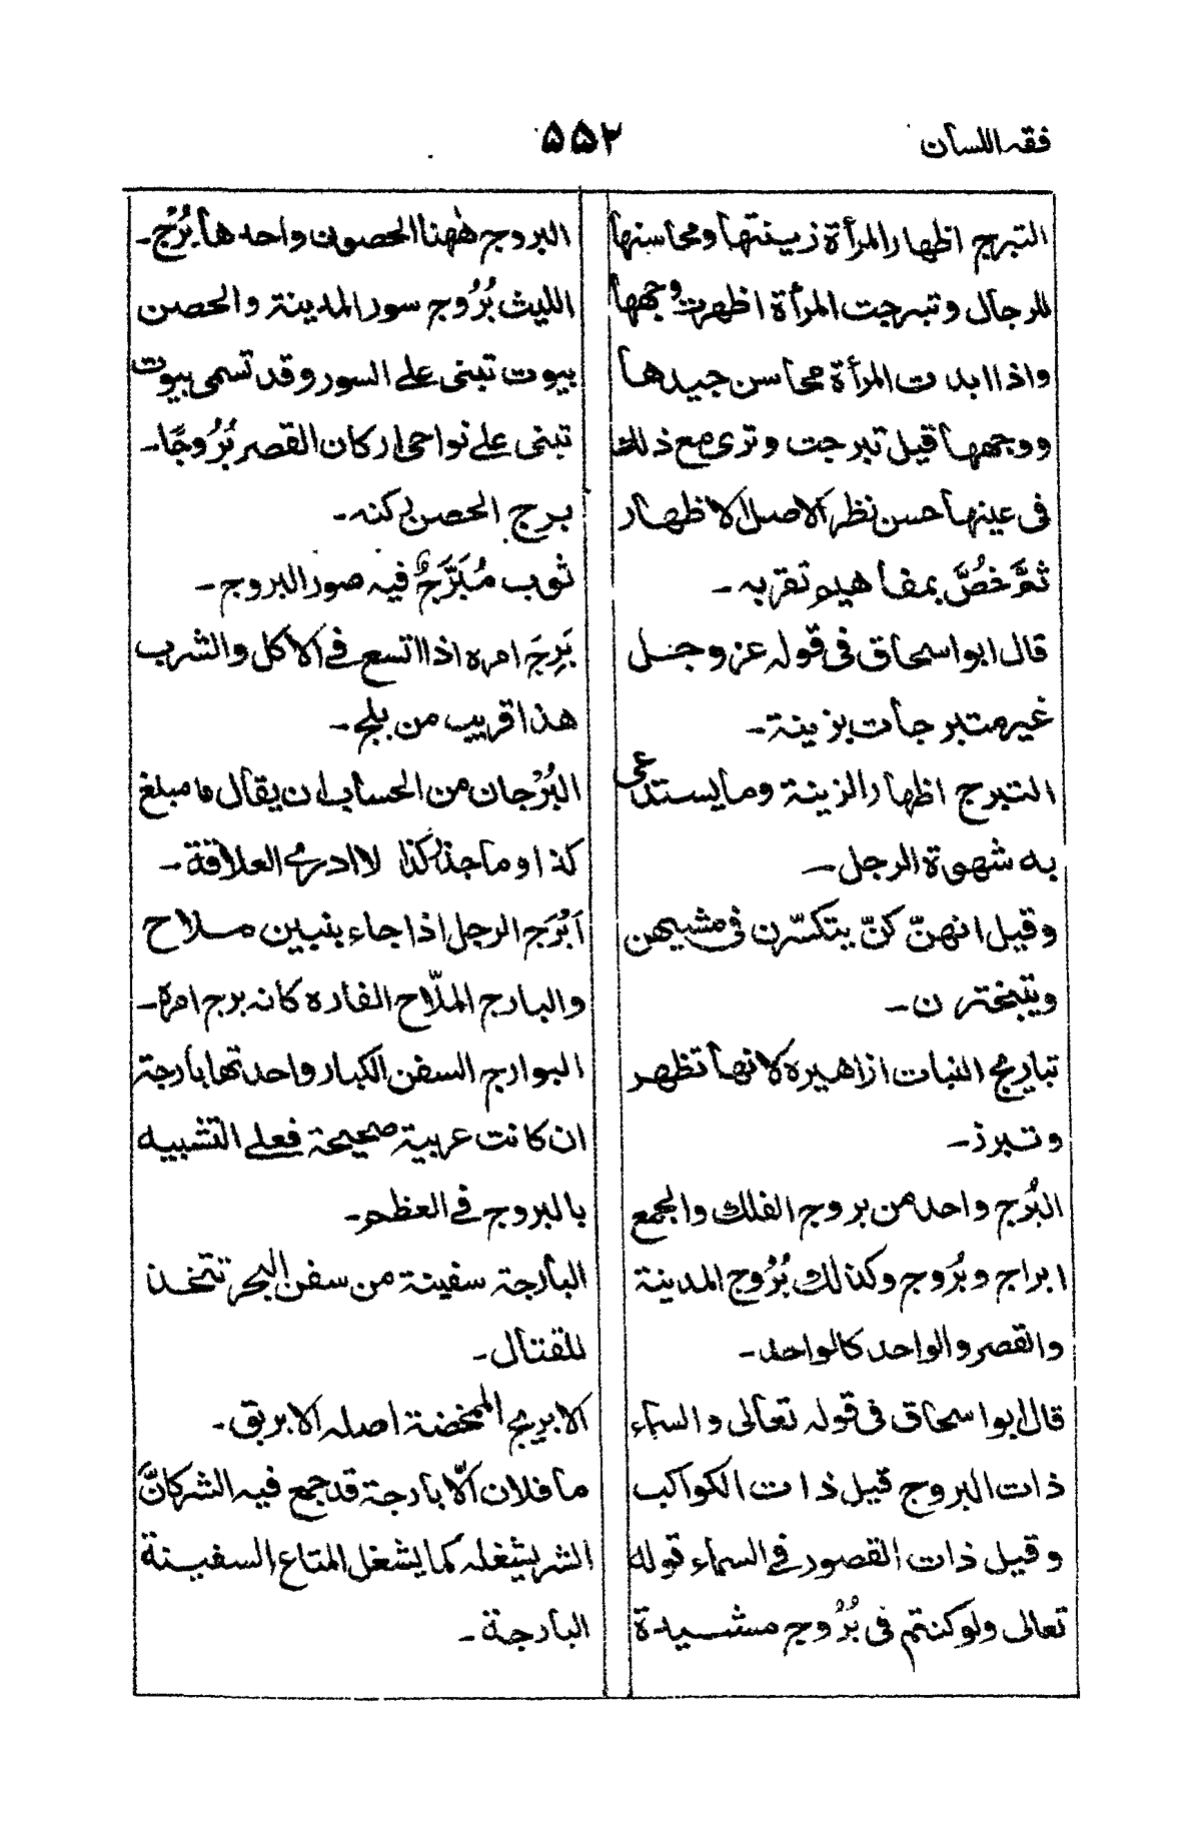 فقہ اللسان
۵۵۲
التبرج اظهار المرأة زينتها ومحاسنها
للرجال وتبرجت المرأة اظهرت وجهها
واذا ابدت المرأة محاسن جيدها
ووجهها قيل تبرجت وترى مع ذلك
فى عينها حسن نظر الاصل الاظهار
ثمَّ خصَّ بمفاهيم تقربه۔
قال ابو اسحاق فى قوله عز وجل
غير متبرجات بزينة۔
التبرج اظهار الزينة وما يستدعى
به شهوة الرجل۔
وقيل انهنّ كنّ يتكسّرن فى مشيهن
ويتبخترن۔
تباريج النبات ازاهيره لانها تظهر
وتبرز۔
البُرج واحد من بروج الفلك والجمع
ابراج وبُروج وكذلك بُرُوج المدينة
والقصر والواحد كالواحد۔
قال ابو اسحاق فى قوله تعالى والسماء
ذات البروج قيل ذات الكواكب
وقيل ذات القصور فى السماء قوله
تعالى ولو كنتم فى بُرُوج مشيدة
البروج هٰهنا الحصون واحدها بُرْج۔
الليث بُرُوج سور المدينة والحصن
بيوت تبنى على السور وقد تسمى بيوت
تبنى على نواحى اركان القصر بُرُوجًا۔
برج الحصن ركنه۔
ثوب مُبَرَّجٌ فيه صور البروج۔
بَرِجَ امره اذا اتسع فى الاكل والشرب
هذا قريب من بلج۔
البُرْجان من الحساب ان يقال ما مبلغ
كذا وما جذر كذا لا ادرى العلاقة۔
اَبْرَجَ الرجل اذا جاء ببنين ملاح
والبارج الملّاح الفاره كانه برج امره۔
البوارج السفن الكبار واحدتها بارجة
ان كانت عربية صحيحة فعلى التشبيه
بالبروج فى العظم۔
البارجة سفينة من سفن البحر تتخذ
للقتال۔
الابريج الممخضة اصله الابريق۔
ما فلان الّا بارجة قد جمع فيه الشر كانَّ
الشر يشغله كما يشغل المتاع السفينة
البارجة۔